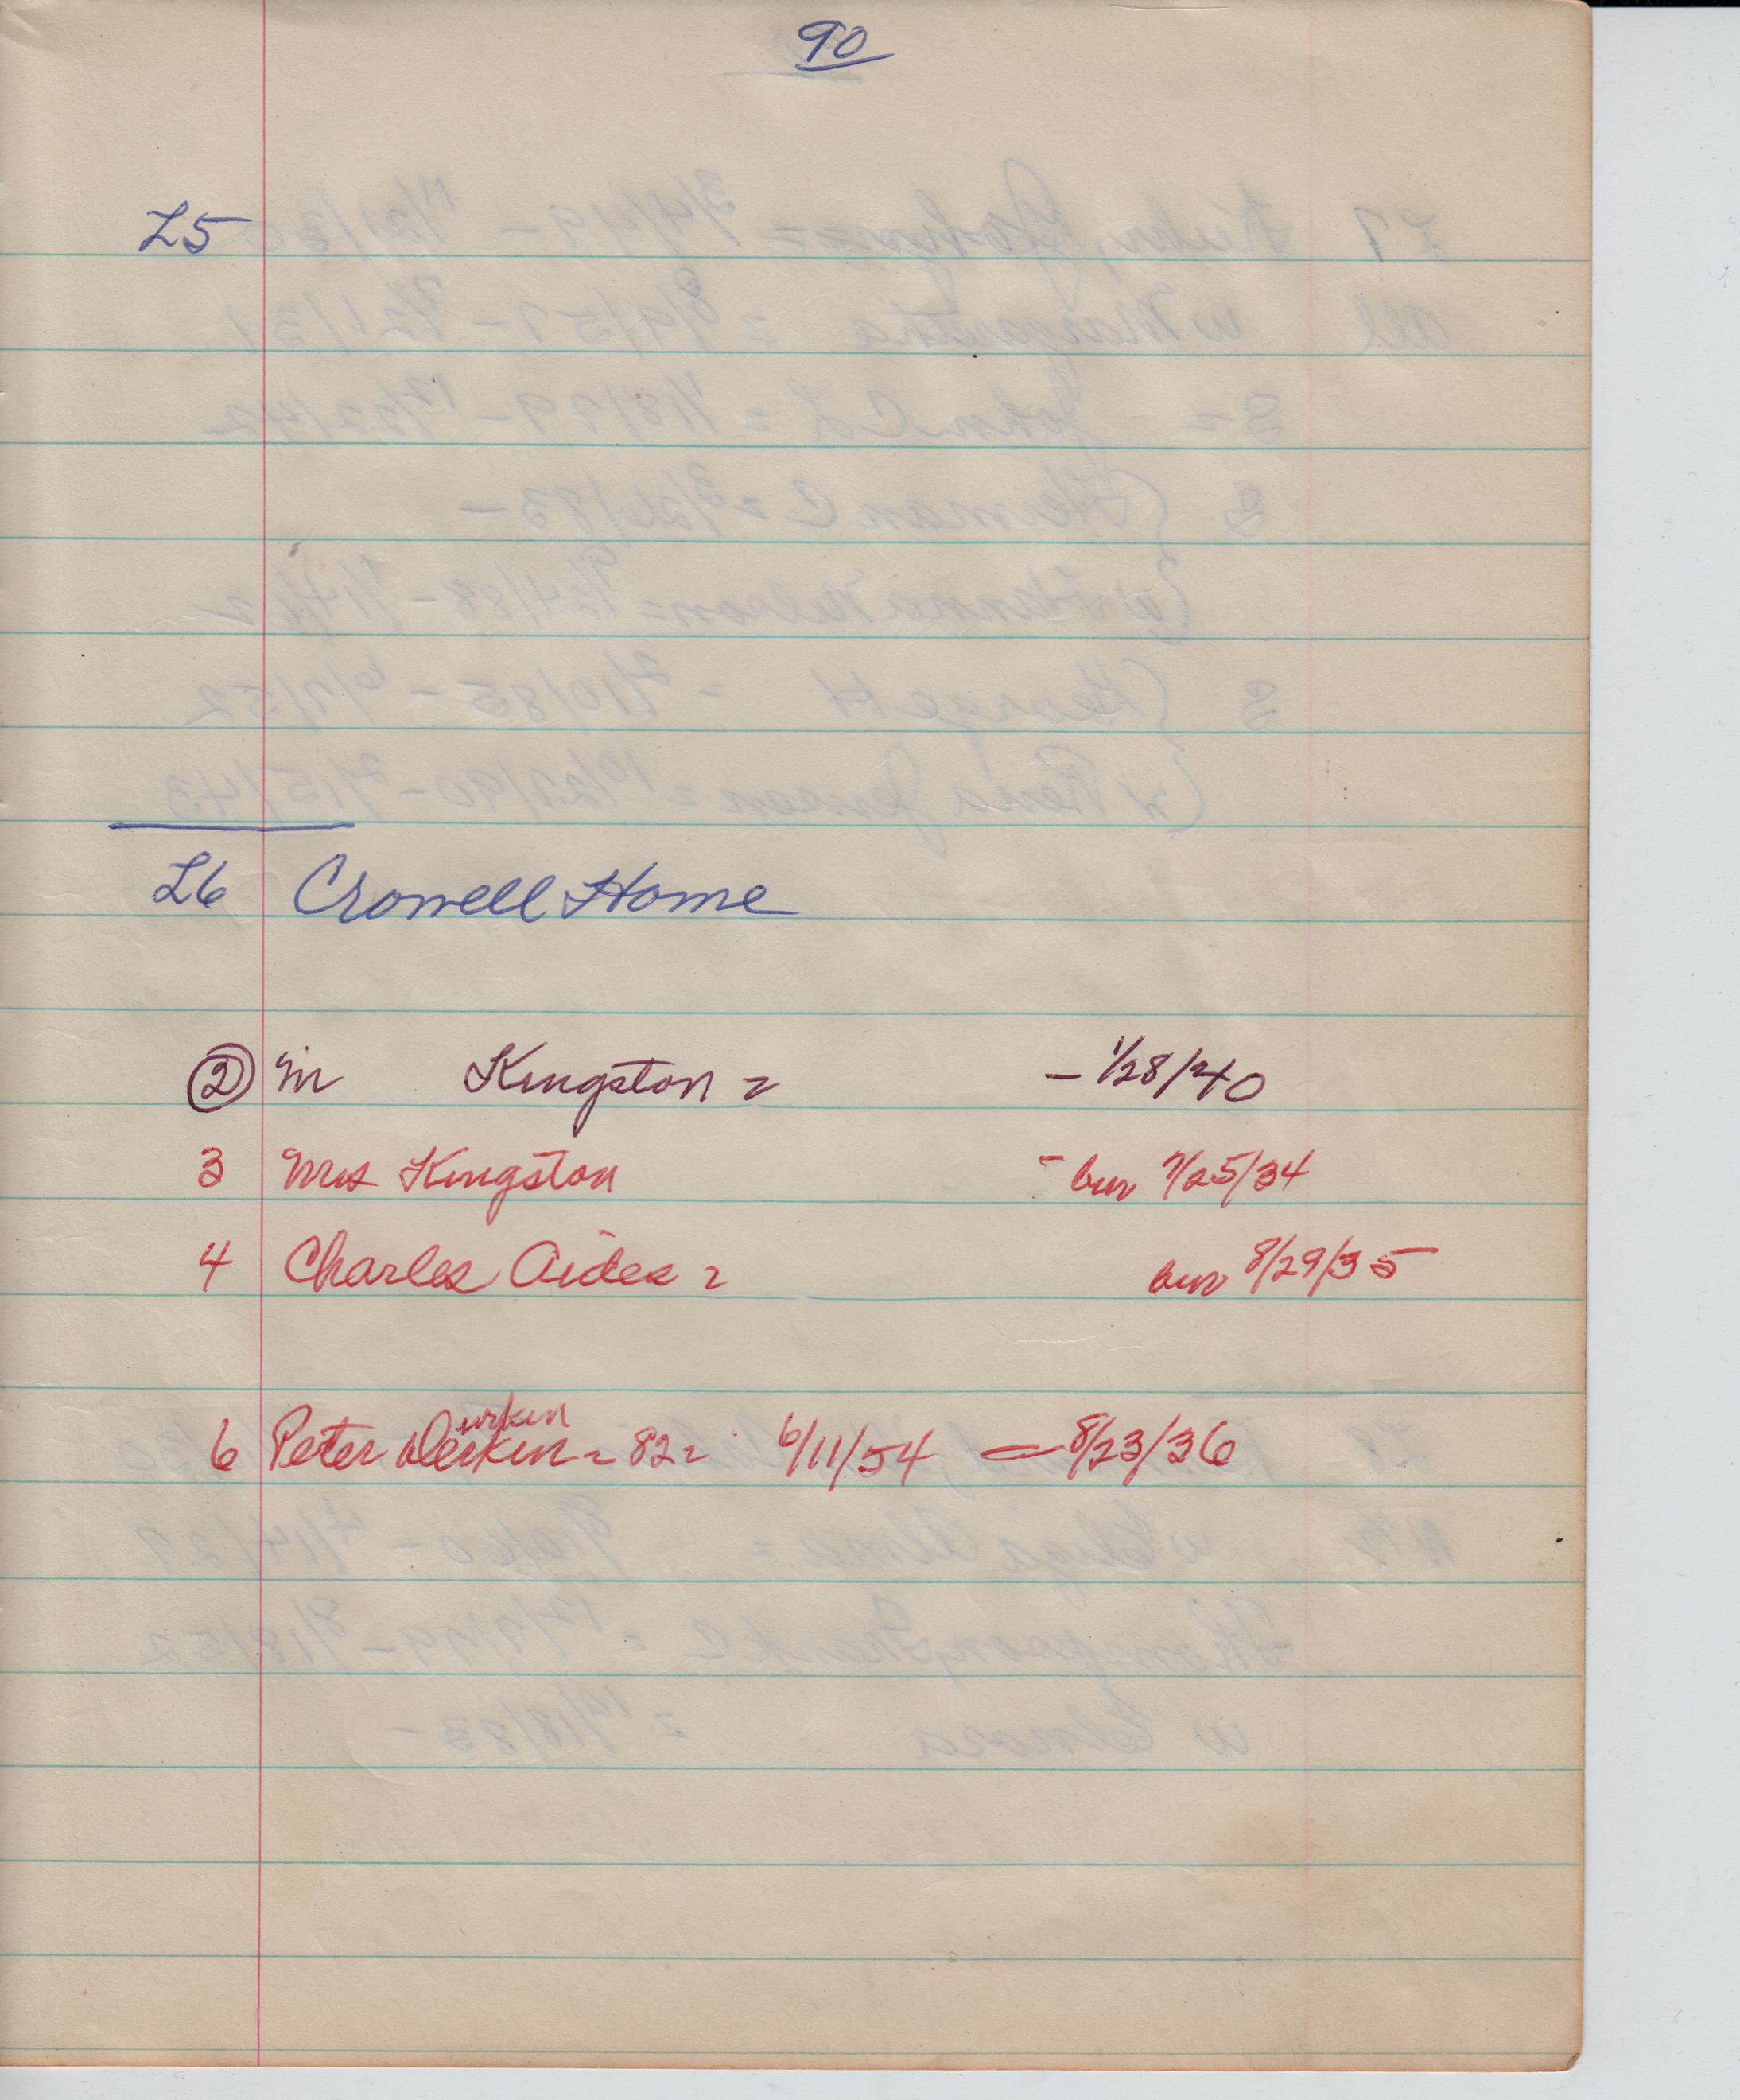 90
L5
L6 Crowell Home
2 M Kingston = - 1/28/40
3 Mrs Kingston - bur 7/25/34
4 Charles Aides = bur 8/29/35
urkin
6 Peter Derkin = 82 = 6/11/54 = 8/23/36